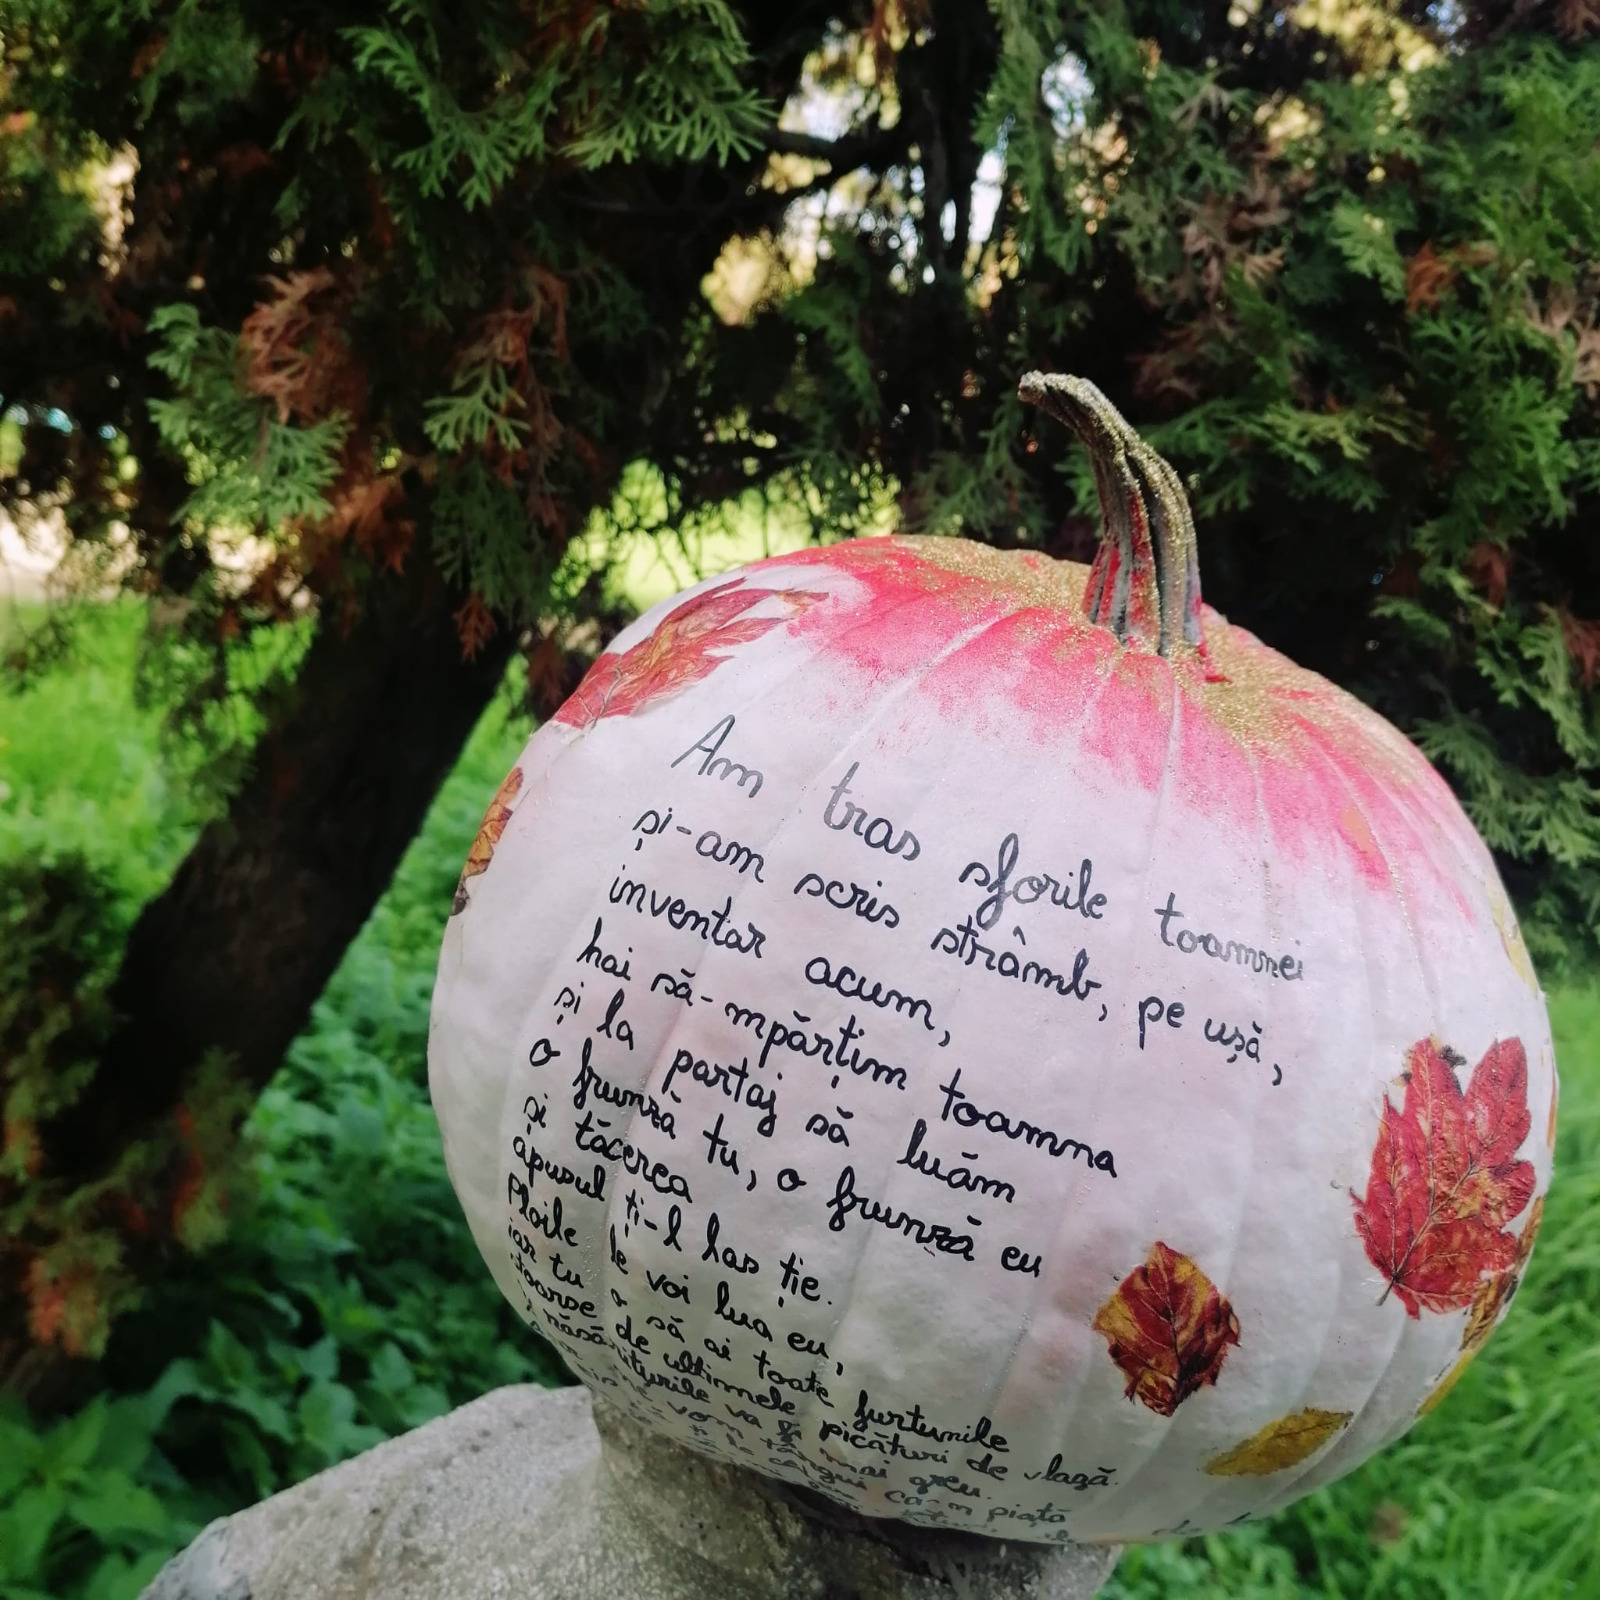 Am tras sforile toamnei
și-am scris strâmb, pe ușă,
inventar acum,
hai să-mpărțim toamna
și la partaj să luăm
o frunză tu, o frunză eu
și tăcerea
apusul ți-l las ție.
Ploile le voi lua eu,
iar tu o să ai toate furtunile
toarse de ultimele picături de vlagă.
răsăriturile va fi mai greu.
vom târgui ca-n piață